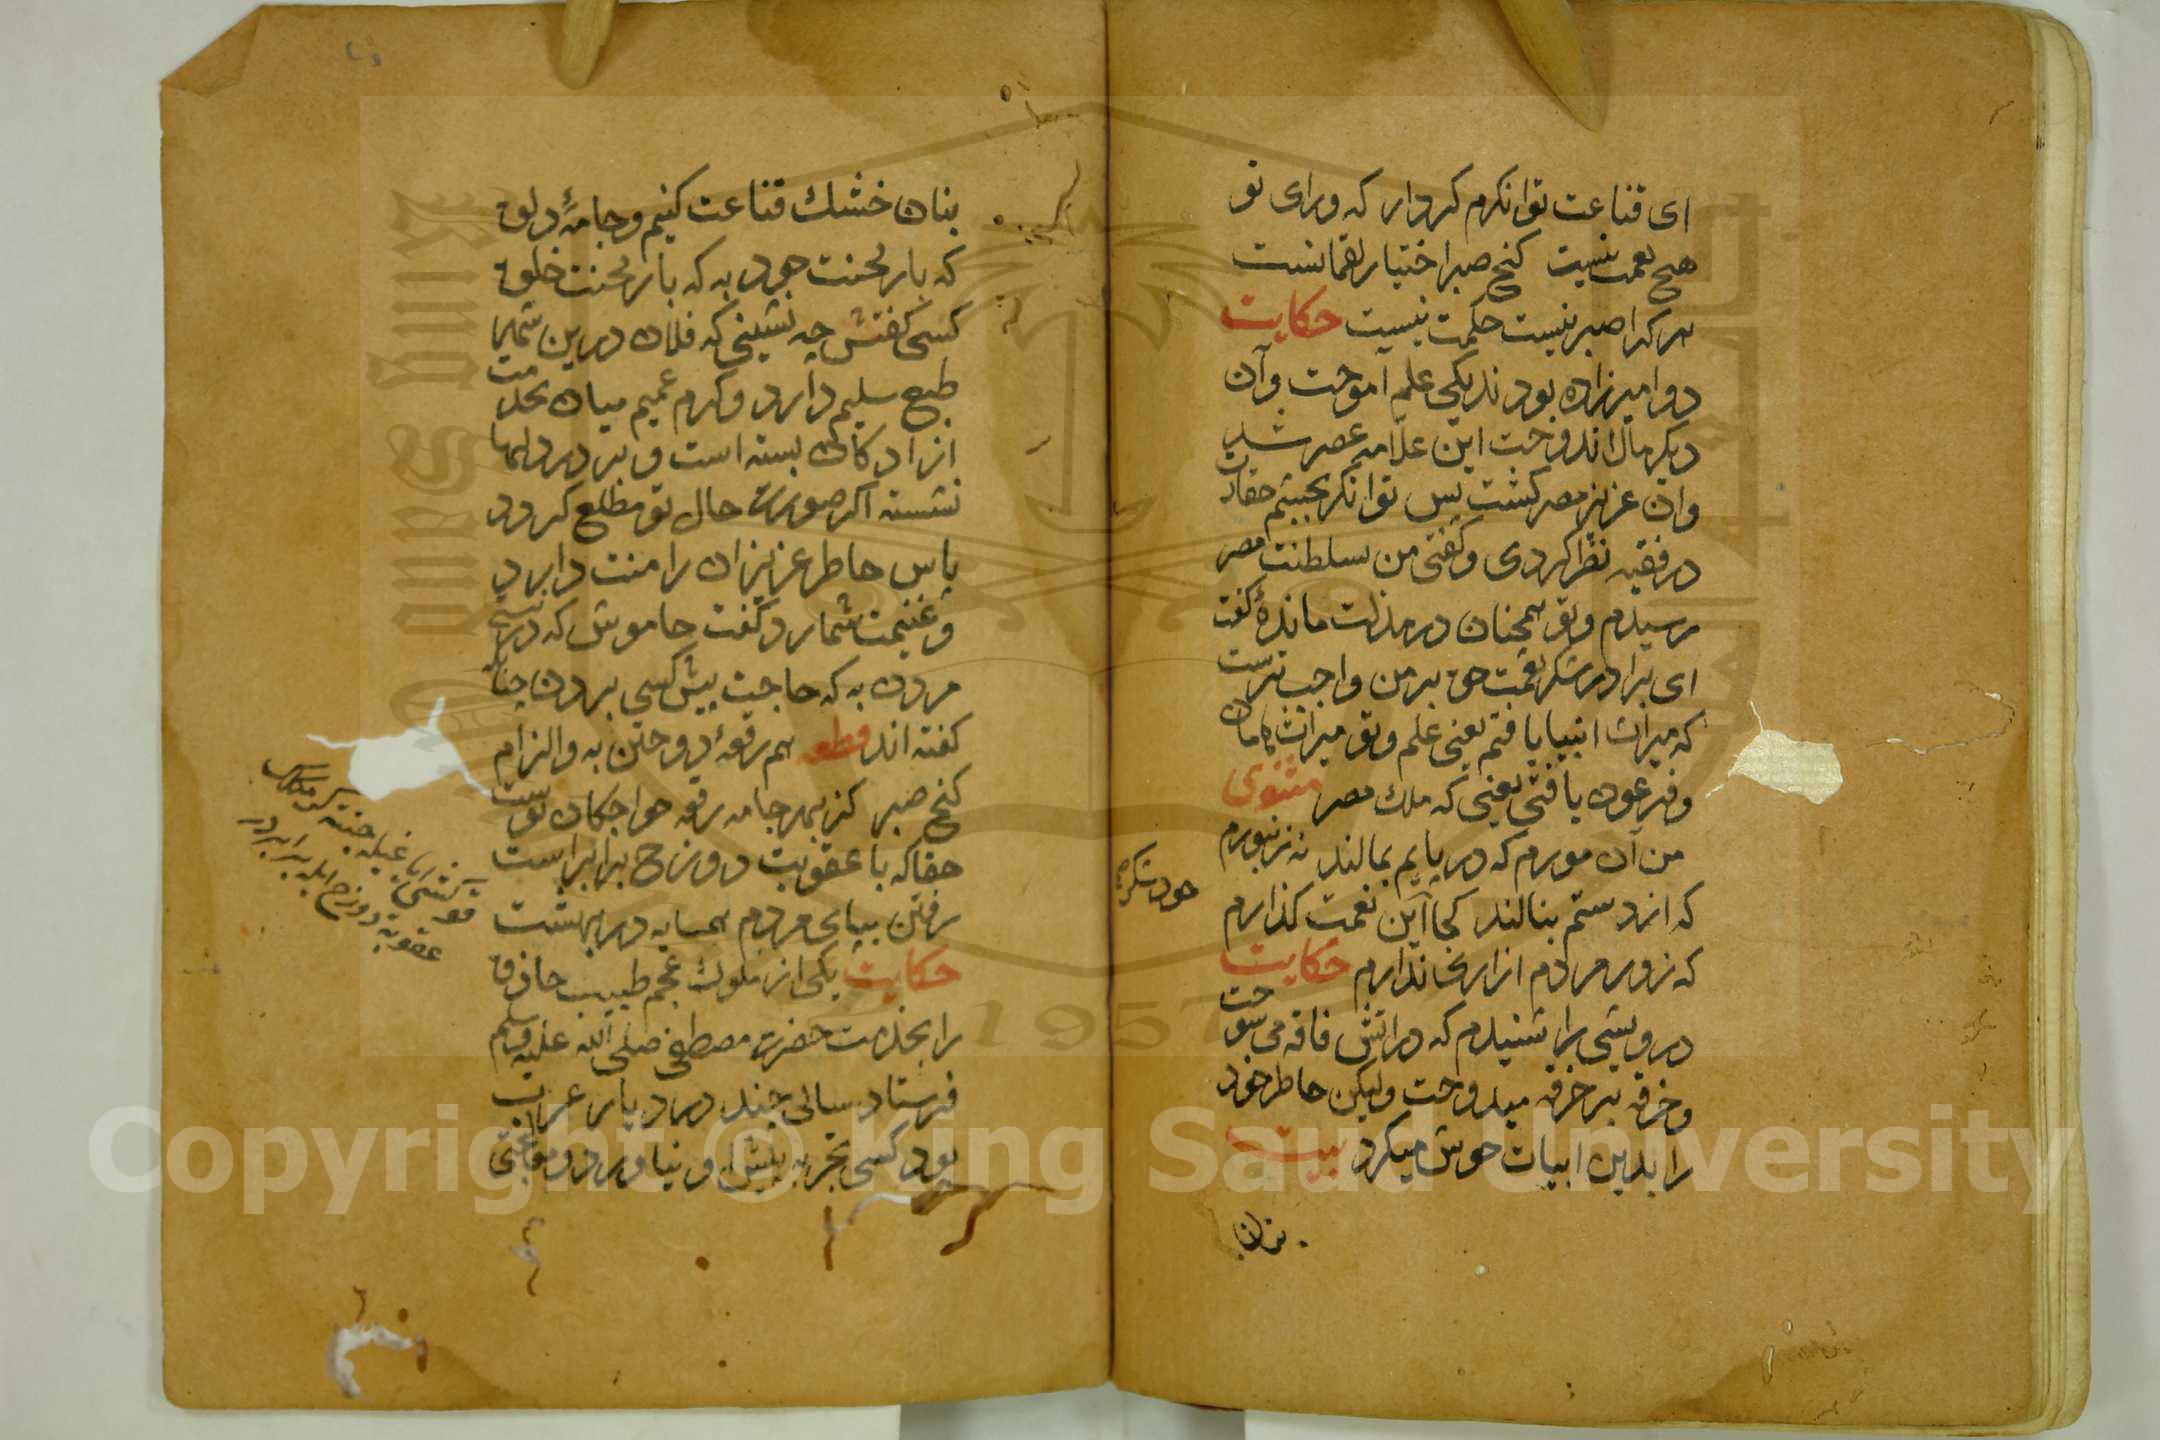 ای قناعت توانکرم کردار که ورای تو
هیچ نعمت نیست کنج صبر اختیار لقمانست
هر کرا صبر نیست حکمت نیست حکایت
دو امیرزاده بودند یکی علم آموخت وآن
دیکر مال اندوخت این علّامه عصر شد
وان عزیز مصر کشت پس توانکر بچشم حقارت
در فقیه نظر کردی وکفتی من سلطنت مصر
رسیدم وتو همچنان در مذلت ماندهٔ کفت
ای برادر شکر نعمت حق بر من واجب ترست
که میراث انبیا یافتم یعنی علم وتو میراث هامان
وفرعون یافتی یعنی که ملك مصر مثنوی
من آن مورم که در پایم بمالند نه زنبورم
که از دستم بنالند کجا این نعمت کذارم
خود شکر
که زور مردم ازاری ندارم حکایت
درویشی را شنیدم که در اتش فاقه می سوخت
وخرقه بر خرقه میدوخت ولیکن خاطر خود
را بدین ابیات خوش میکرد بیت
بنان
بنان خشك قناعت کنیم وجامهٔ دلق
که بار محنت خود به که بار محنت خلق
کسی کفتش چه نشینی که فلان درین شهر
طبع سلیم دارد وکرم عمیم میان بخدمت
ازادکان بسته است وبر در دلها
نشسته اکر صورت حال تو مطلع کردد
پاس خاطر عزیزان را منت دارد
وغنیمت شمارد کفت خاموش که در پستی
مردن به که حاجت پیش کسی بردن چنانکه
کفته اند قطعه هم رقعهٔ دوختن به والزام
کنج صبر کز بهر جامه رقعه خواجکان نوشت
حقا که با عقوبت دوزخ برابراست
رفتن بپای مردم همسایه در بهشت
حکایت یکی از ملوك عجم طبیب حاذق
را بخدمت حضرت مصطفی صلی الله علیه وسلم
فرستاد سالی چند در دیار عرب
بود کسی تجربه پیش او نیاورد ومعالجتی